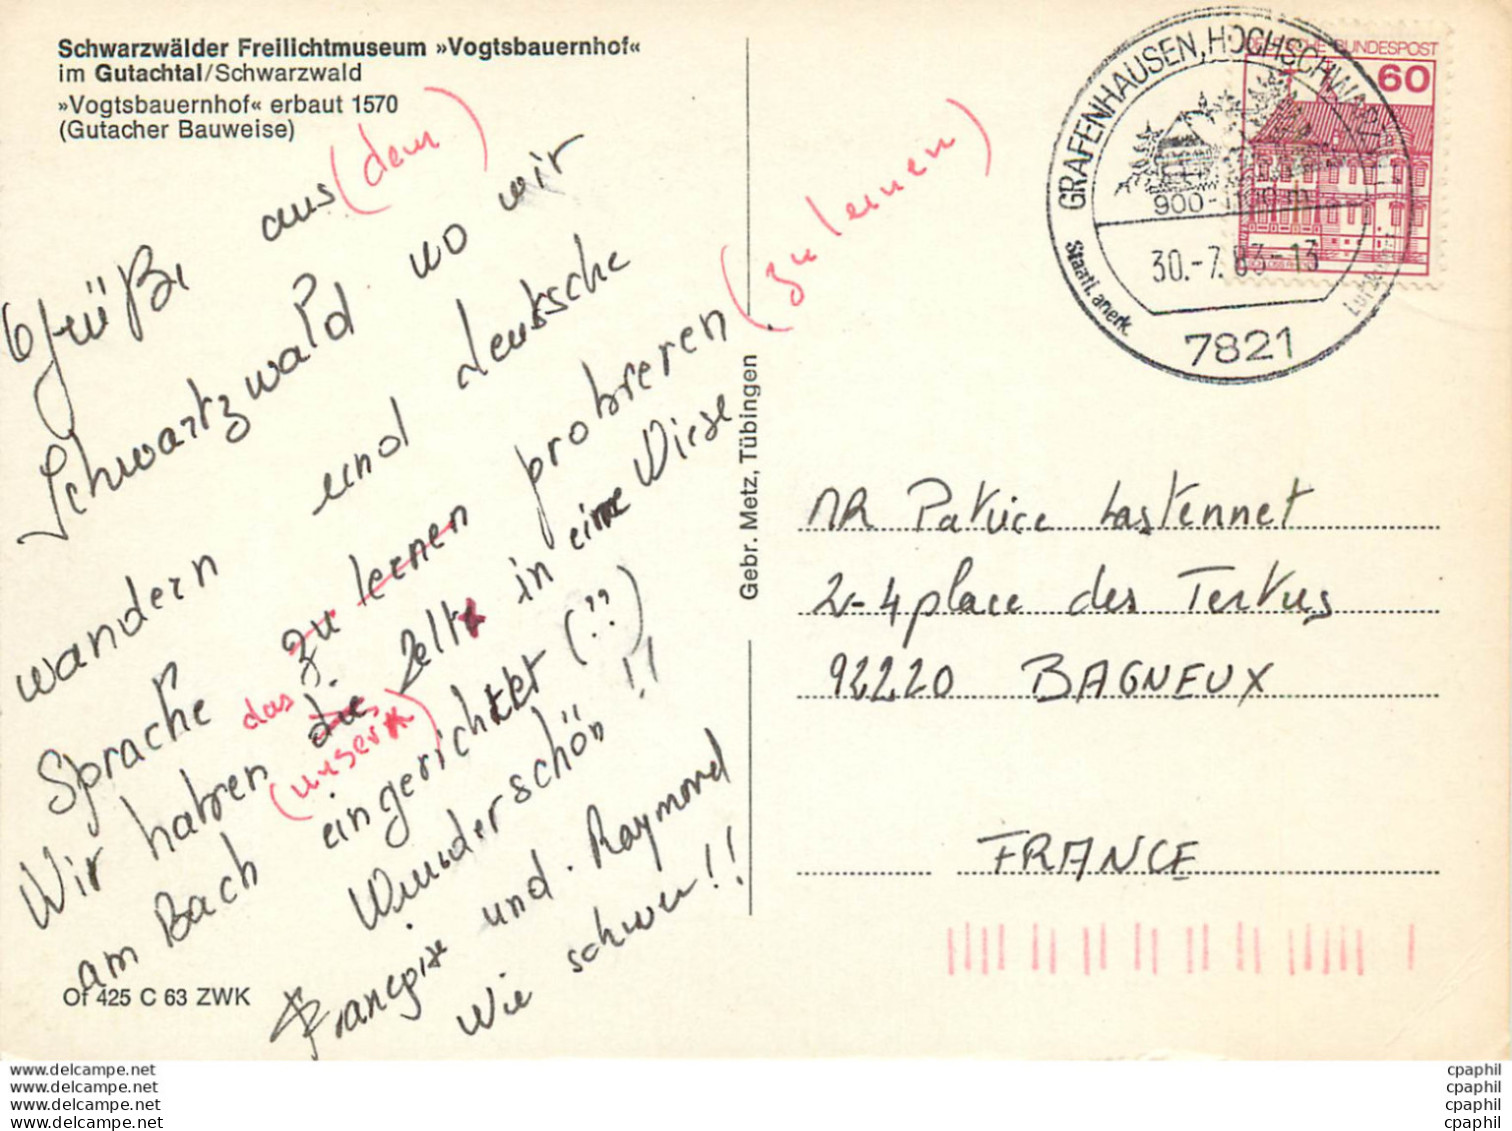 Schwarzwälder Freilichtmuseum »Vogtsbauernhof«
im Gutachtal/Schwarzwald
»Vogtsbauernhof« erbaut 1570
(Gutacher Bauweise)
Grüße aus (dem)
Schwartzwald wo wir
wandern und deutsche
Sprache zu lernen probieren (zu lernen)
Wir haben das die Zelte in eine Wiese
(unser)
am Bach eingerichtet (??)
Wunderschön !!
Françoise und Raymond
Wie schwer !!
Of 425 C 63 ZWK
Gebr. Metz, Tübingen
DEUTSCHE BUNDESPOST
60
GRAFENHAUSEN, HOCHSCHWARZWALD
900-1100 m
30.-7.83-13
Staatl. anerk.
7821
MR Patrice Lastennet
2-4 place des Tertres
92220 BAGNEUX
FRANCE
www.delcampe.net
www.delcampe.net
www.delcampe.net
www.delcampe.net
cpaphil
cpaphil
cpaphil
cpaphil